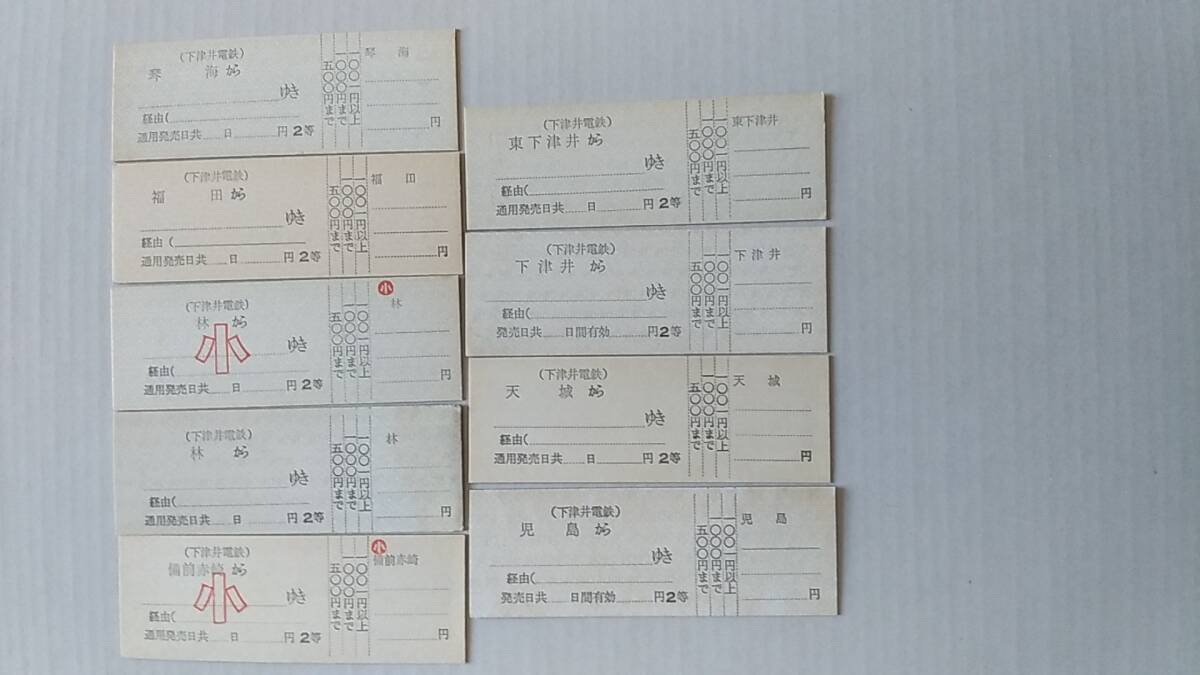 (下津井電鉄)
琴海から
ゆき
経由(
通用発売日共 日 円2等
五〇〇円まで
一〇〇〇円まで
一〇〇一円以上
琴海
円
(下津井電鉄)
福田から
ゆき
経由(
通用発売日共 日 円2等
五〇〇円まで
一〇〇〇円まで
一〇〇一円以上
福田
円
(下津井電鉄)
林から
小
ゆき
経由(
通用発売日共 日 円2等
五〇〇円まで
一〇〇〇円まで
一〇〇一円以上
小
林
円
(下津井電鉄)
林から
ゆき
経由(
通用発売日共 日 円2等
五〇〇円まで
一〇〇〇円まで
一〇〇一円以上
林
円
(下津井電鉄)
備前赤崎から
小
ゆき
経由(
通用発売日共 日 円2等
五〇〇円まで
一〇〇〇円まで
一〇〇一円以上
小
備前赤崎
円
(下津井電鉄)
東下津井から
ゆき
経由(
通用発売日共 日 円2等
五〇〇円まで
一〇〇〇円まで
一〇〇一円以上
東下津井
円
(下津井電鉄)
下津井から
ゆき
経由(
発売日共 日間有効 円2等
五〇〇円まで
一〇〇〇円まで
一〇〇一円以上
下津井
円
(下津井電鉄)
天城から
ゆき
経由(
通用発売日共 日 円2等
五〇〇円まで
一〇〇〇円まで
一〇〇一円以上
天城
円
(下津井電鉄)
児島から
ゆき
経由(
発売日共 日間有効 円2等
五〇〇円まで
一〇〇〇円まで
一〇〇一円以上
児島
円